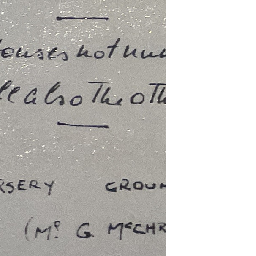 ouses not num
ll also The oth
RSERY GROUN
(Mr G McCHR